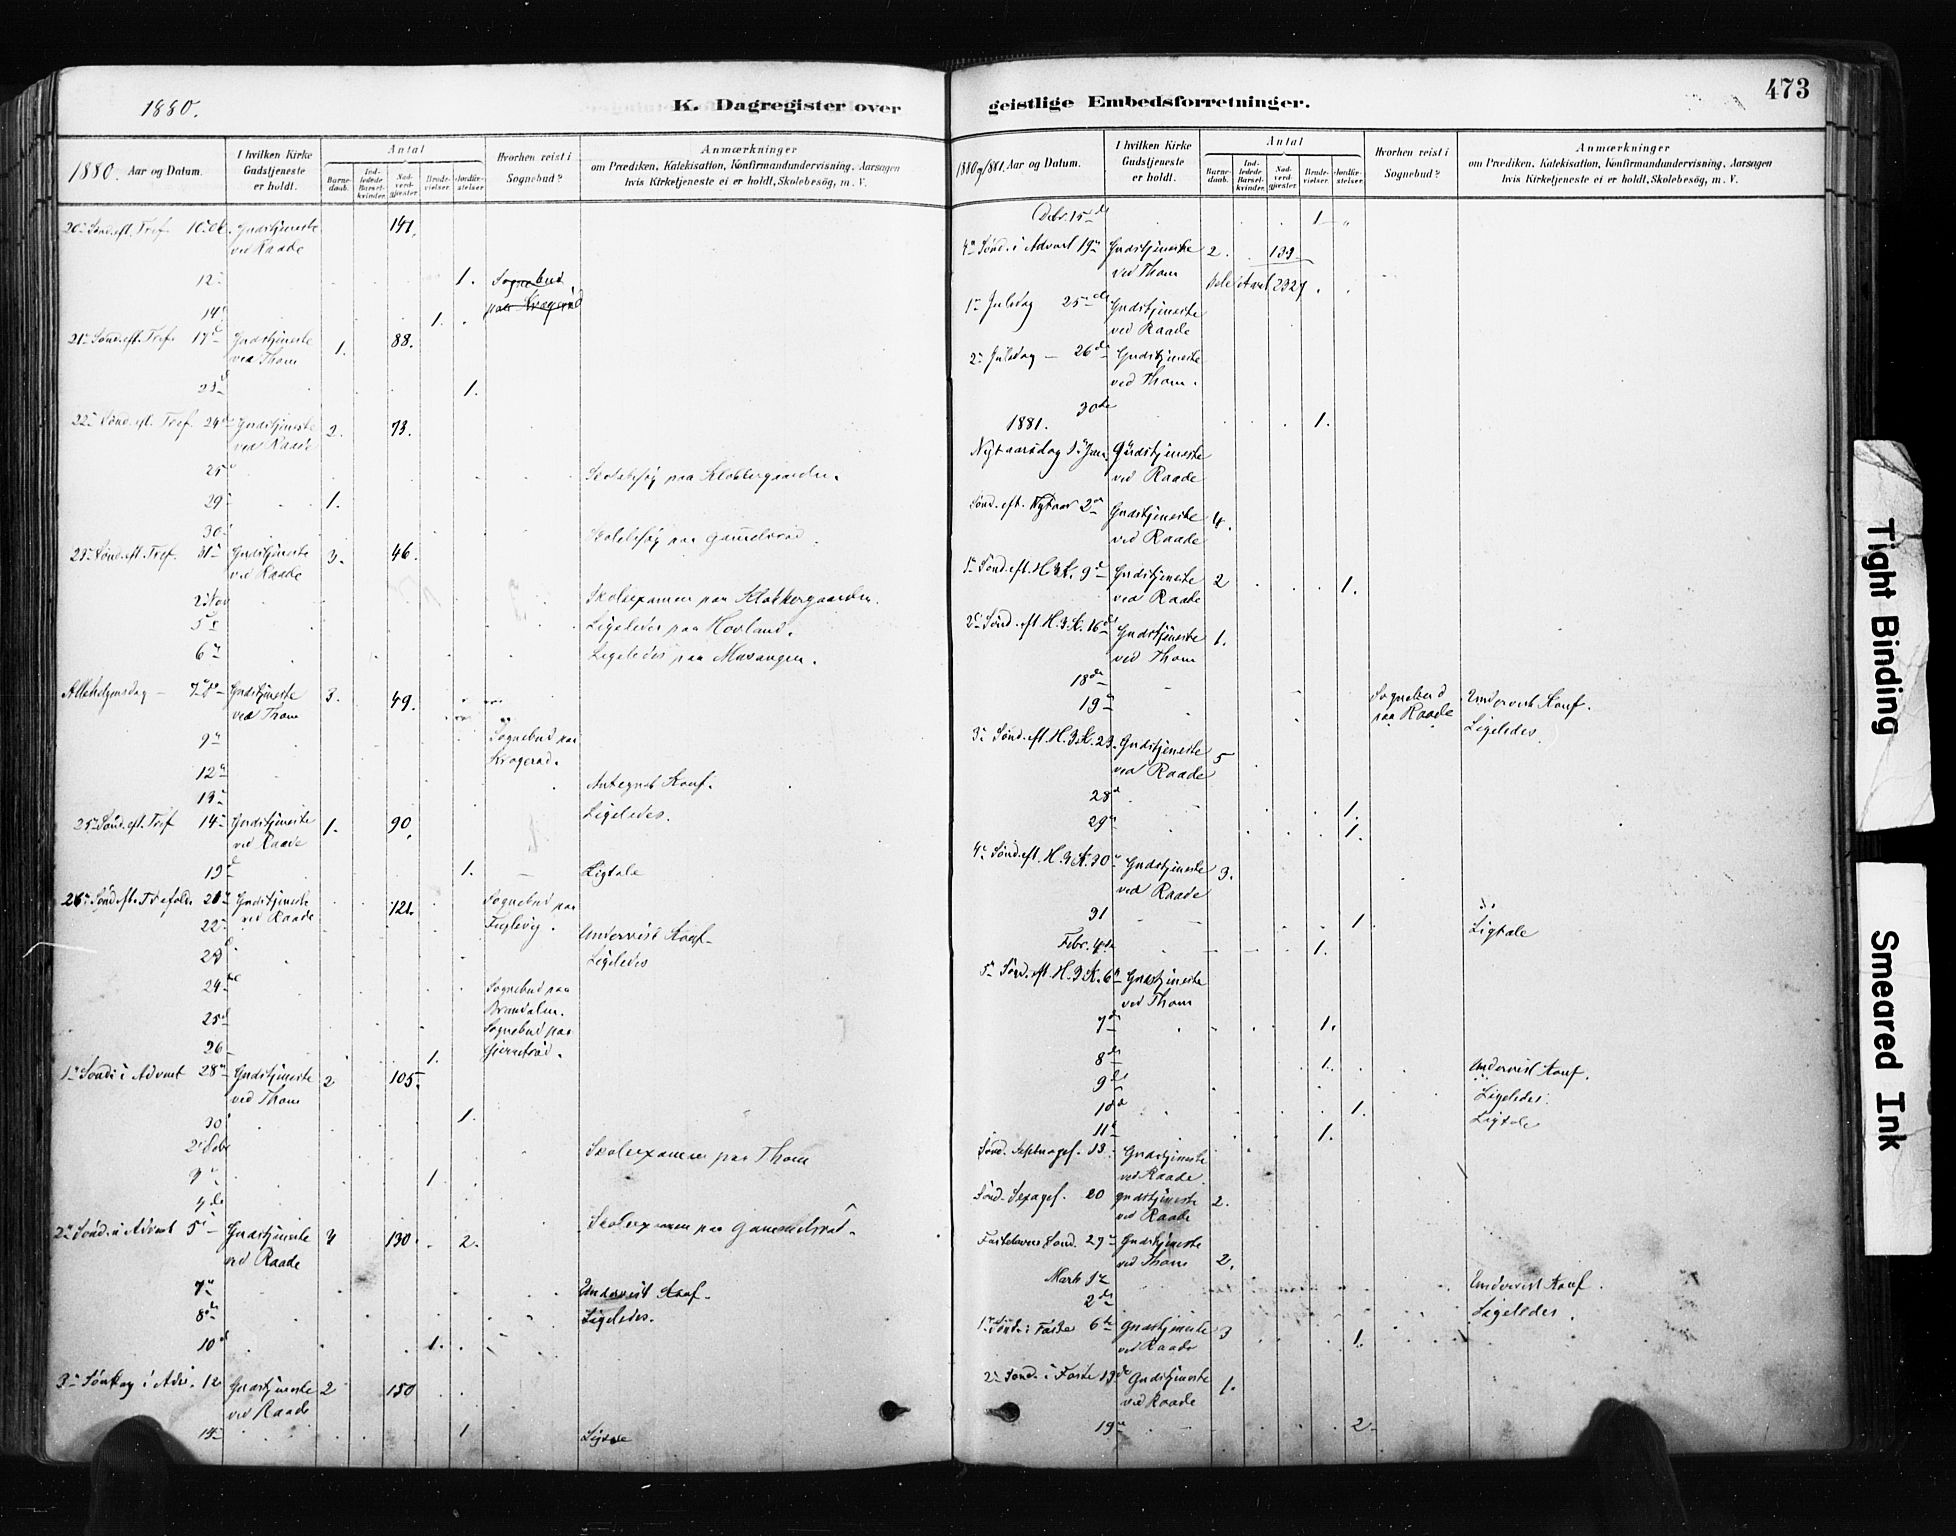 1880.
K. Dagregister over
1880. Aar og Datum.
I hvilken Kirke Gudstjeneste er holdt.
Antal
Barnedaab.
Indledede Barselkvinder.
Nadverdgjester.
Brudevielser.
Jordfæstelser.
Hvorhen reist i Sognebud?
Anmærkninger
om Prædiken, Katekisation, Konfirmandundervisning, Aarsagen
hvis Kirketjeneste ei er holdt, Skolebesøg, m. V.
20 Sønd. eft. Tref. 10 Gudstjeneste 141.
ved Raade
12 1. Sognebud
14 1.
21 Sønd. eft. Tref. 17 Gudstjeneste 1. 88.
ved Thom
23 1.
22 Sønd. eft. Tref. 24 Gudstjeneste 2. 73.
ved Raade
25 Skolebesøg paa Klokkergaarden.
29 1.
30 Skolebesøg paa
23 Sønd. eft. Tref. 31 Gudstjeneste 3. 46.
ved Raade
2 Nov Skoleexamen paa Klokkergaarden.
5 Ligeledes paa Hovland.
6 Ligeledes paa
Allehelgensdag 7 Gudstjeneste 3. 49.
ved Thom
9 Sognebud paa
12 Antegnet Konf.
13 Ligeledes.
25 Sønd. eft. Tref 14 Gudstjeneste 1. 90.
ved Raade
19 1. Ligtale
26 Sønd. eft. Trefold. 21 Gudstjeneste 121. Sognebud paa
ved Raade
22 Undervist Konf.
23 Ligeledes
24 Sognebud paa
25 Sognebud paa
26 1.
1 Sønd. i Advent 28 Gudstjeneste 2 105.
ved Thom
30 1.
2 Skoleexamen paa Thom
3 1.
4 Skoleexamen paa
2 Sønd. i Advent 5 Gudstjeneste 4 130 2.
ved Raade
7 Undervist Konf.
8 Ligeledes.
10 1.
3 Søndag i Adv. 12 Gudstjeneste 2 150
ved Raade
1 Ligtale
473
geistlige Embedsforretninger.
1880 og 1881. Aar og Datum.
I hvilken Kirke Gudstjeneste er holdt.
Antal
Barnedaab.
Indledede Barselkvinder.
Nadverdgjester.
Brudevielser.
Jordfæstelser.
Hvorhen reist i Sognebud?
Anmærkninger
om Prædiken, Katekisation, Konfirmandundervisning, Aarsagen
hvis Kirketjeneste ei er holdt, Skolebesøg, m. V.
15 1
4 Sønd. i Advent 19 Gudstjeneste 2. 139
ved Thom
1 Juledag 25 Gudstjeneste
ved Raade
2 Juledag 26 Gudstjeneste
ved Thom.
30 1.
1881.
Nytaarsdag 1 Jan. Gudstjeneste
ved Raade
Sønd. eft. Nytaar 2 Gudstjeneste 4.
ved Raade
1 Sønd. eft. H. 3 K. 9 Gudstjeneste 2 1.
ved Raade
2 Sønd. eft. H. 3 K. 16 Gudstjeneste 1.
ved Thom
18 Sognebud Undervist Konf.
19 paa Raade Ligeledes.
3 Sønd. eft. H. 3 K. 23. Gudstjeneste 5
ved Raade
28 1.
29 1.
4 Sønd. eft. H. 3 K. 30 Gudstjeneste 3.
ved Raade
31 1 Ligtale
Febr. 4 1.
5 Sønd. eft. H. 3 K. 6 Gudstjeneste
ved Thom
7 1.
8 1. Undervist Konf.
9 Ligeledes.
10 1. Ligtale
11 1.
Sønd. Septuages. 13. Gudstjeneste
ved Raade.
Sønd. Sexages. 20 Gudstjeneste 2.
ved Raade
Fastelavns Sønd. 27 Gudstjeneste 2.
ved Thom
Marts 1 Undervist Konf.
2 Ligeledes.
1 Sønd. i Faste 6 Gudstjeneste 3 1.
ved Raade
2 Sønd. i Faste 13 Gudstjeneste 1.
ved Raade
19 2
Tight Binding
Smeared Ink